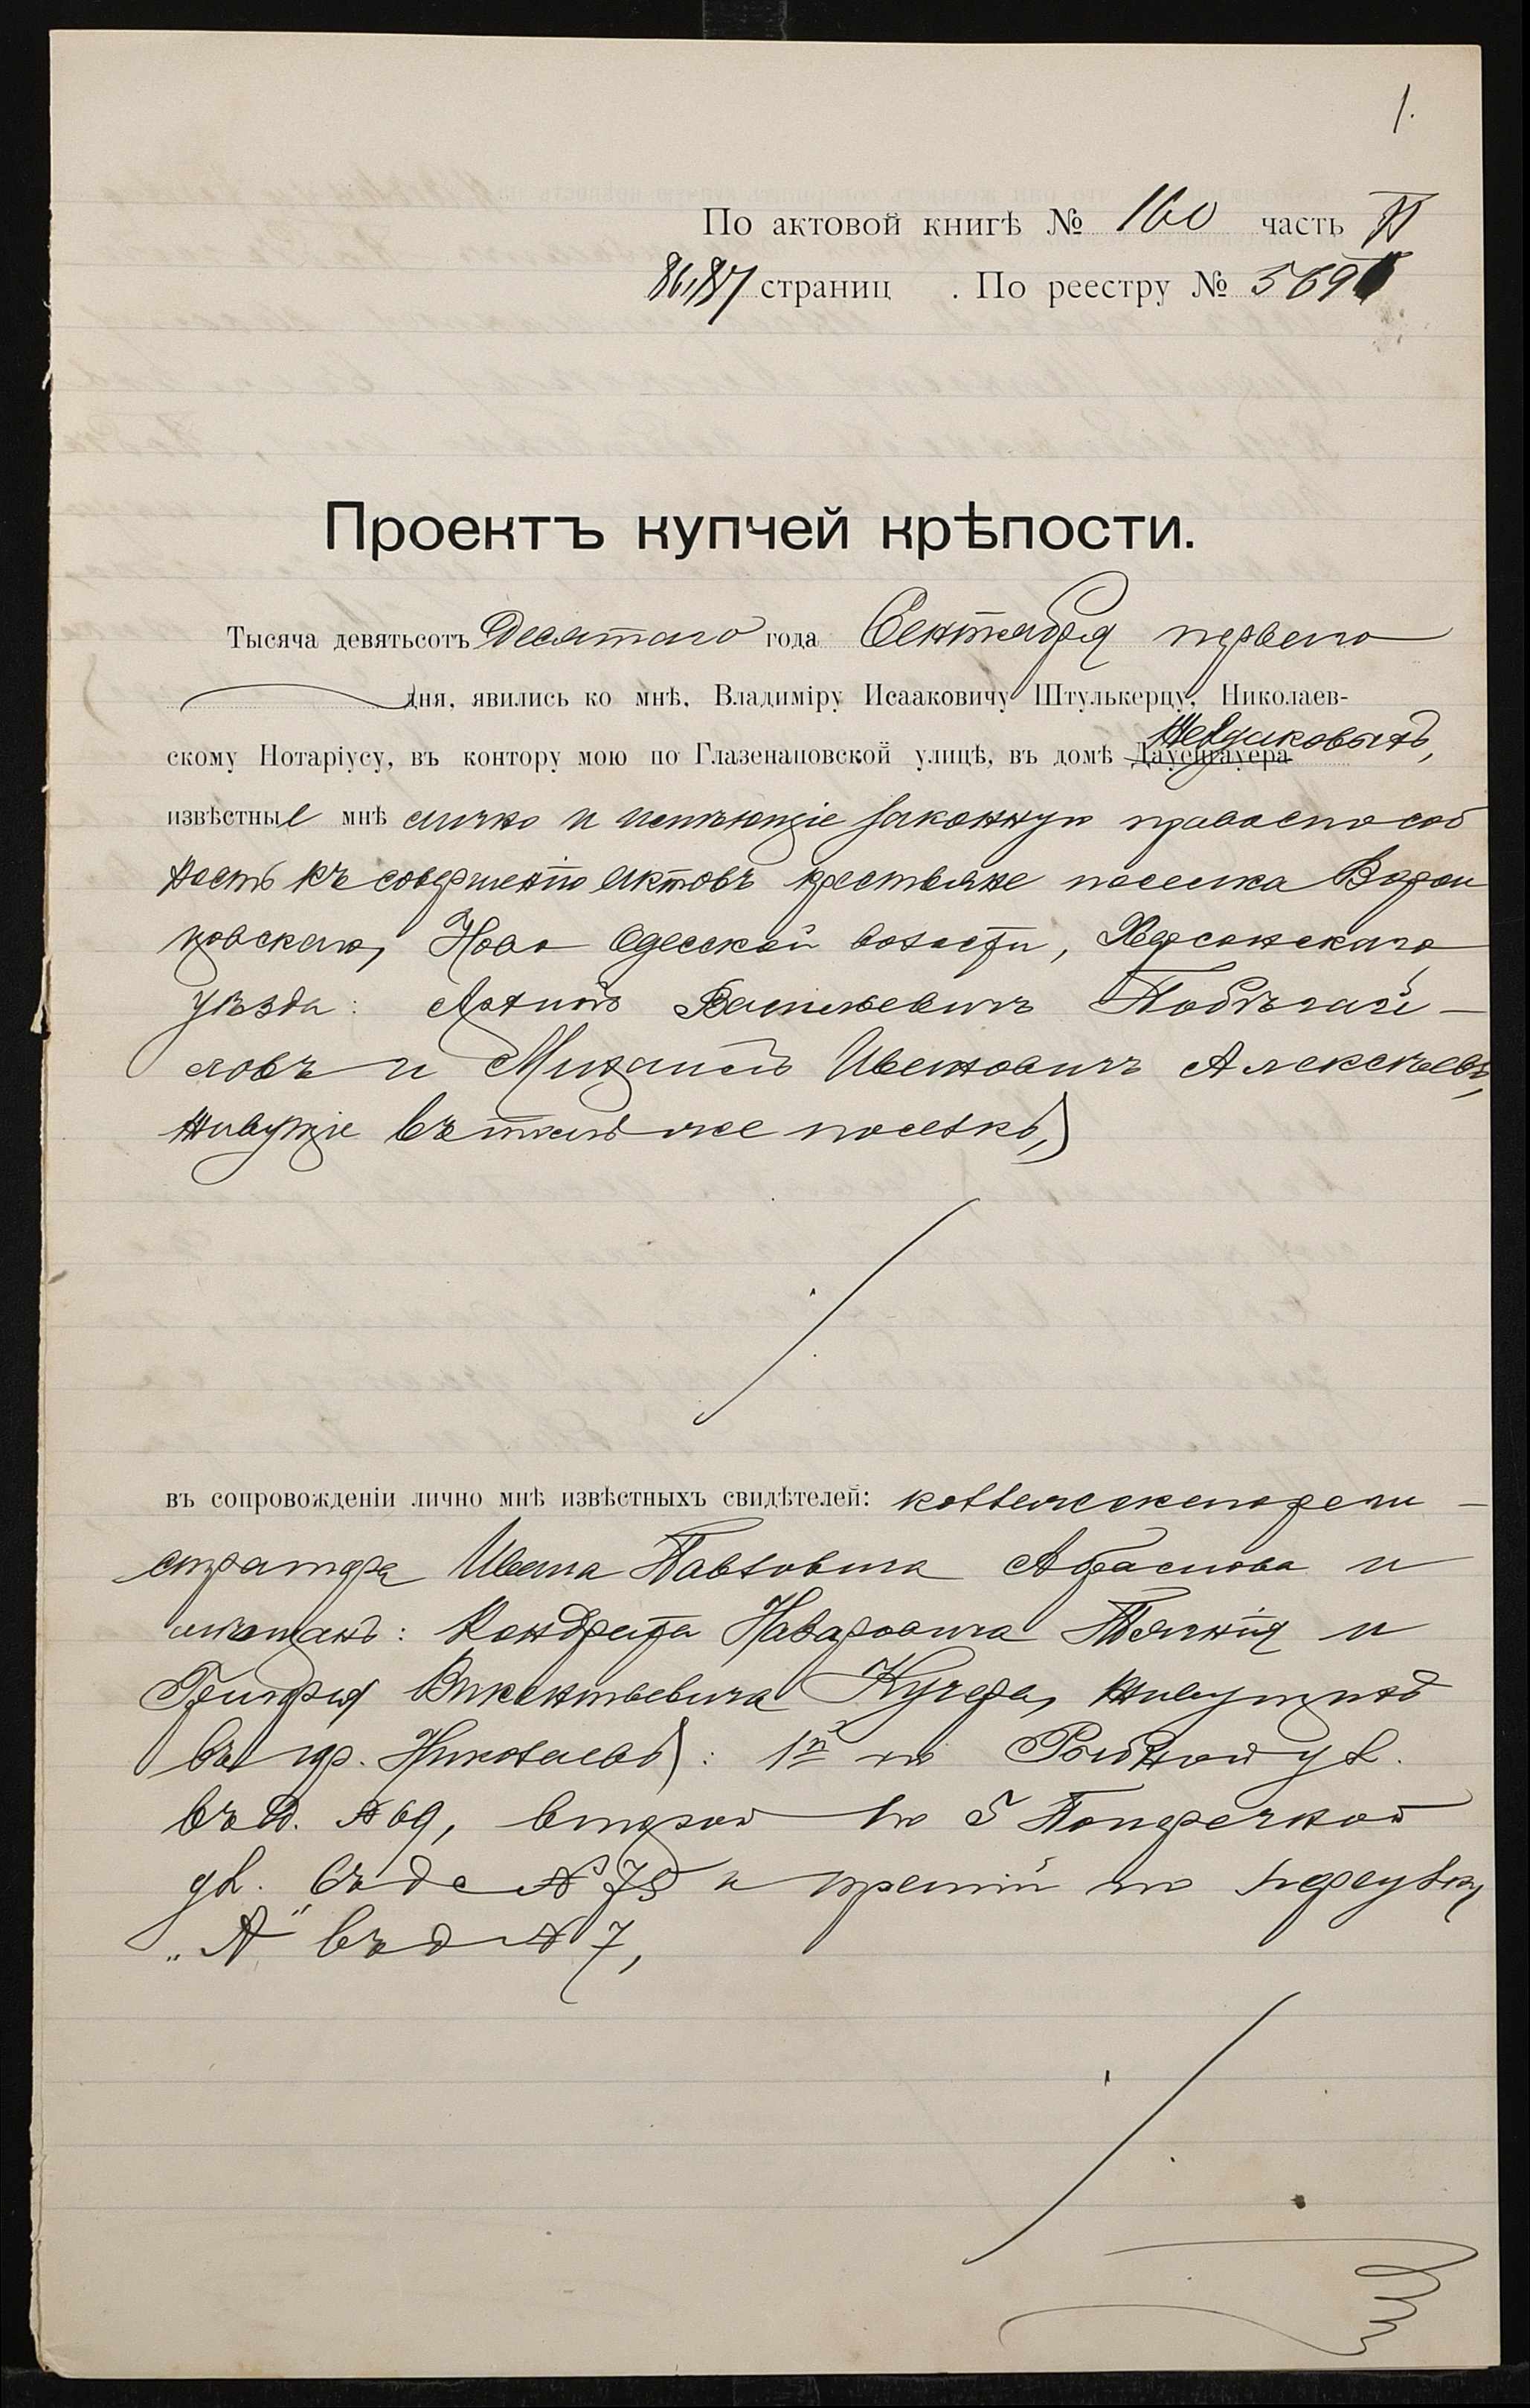 1.
По актовой книгѣ № 160 часть II
86,87 страниц . По реестру № 569
Проектъ купчей крѣпости.
Тысяча девятьсотъ Десятаго года Сентября перваго
дня, явились ко мнѣ, Владиміру Исааковичу Штулькерцу, Николаев-
скому Нотаріусу, въ контору мою по Глазенаповской улицѣ, въ домѣ Даусенгауера
известные мнѣ лично и имѣющіе законную правоспособ
ность къ совершенію актовъ крестьяне поселка Ворон
цовскаго, Ново Одесской волости, Херсонскаго
уѣзда: Архипъ Васильевичъ
и Михаилъ Ивановичъ Алексѣевъ,
живущіе въ томъ же поселкѣ,
въ сопровожденіи лично мнѣ извѣстныхъ свидѣтелей: коллежскаго реги-
стратора Ивана Павловича и
мѣщанъ: Кондрата Назаровича и
Викентьевича Кучера, живущихъ
въ гор. Николаевѣ: 1й по Рыбной ул.
въ д. № 69, второй по 5 Поперечной
ул. въ д № 75 и третій по переулку
„А" въ д № 7,